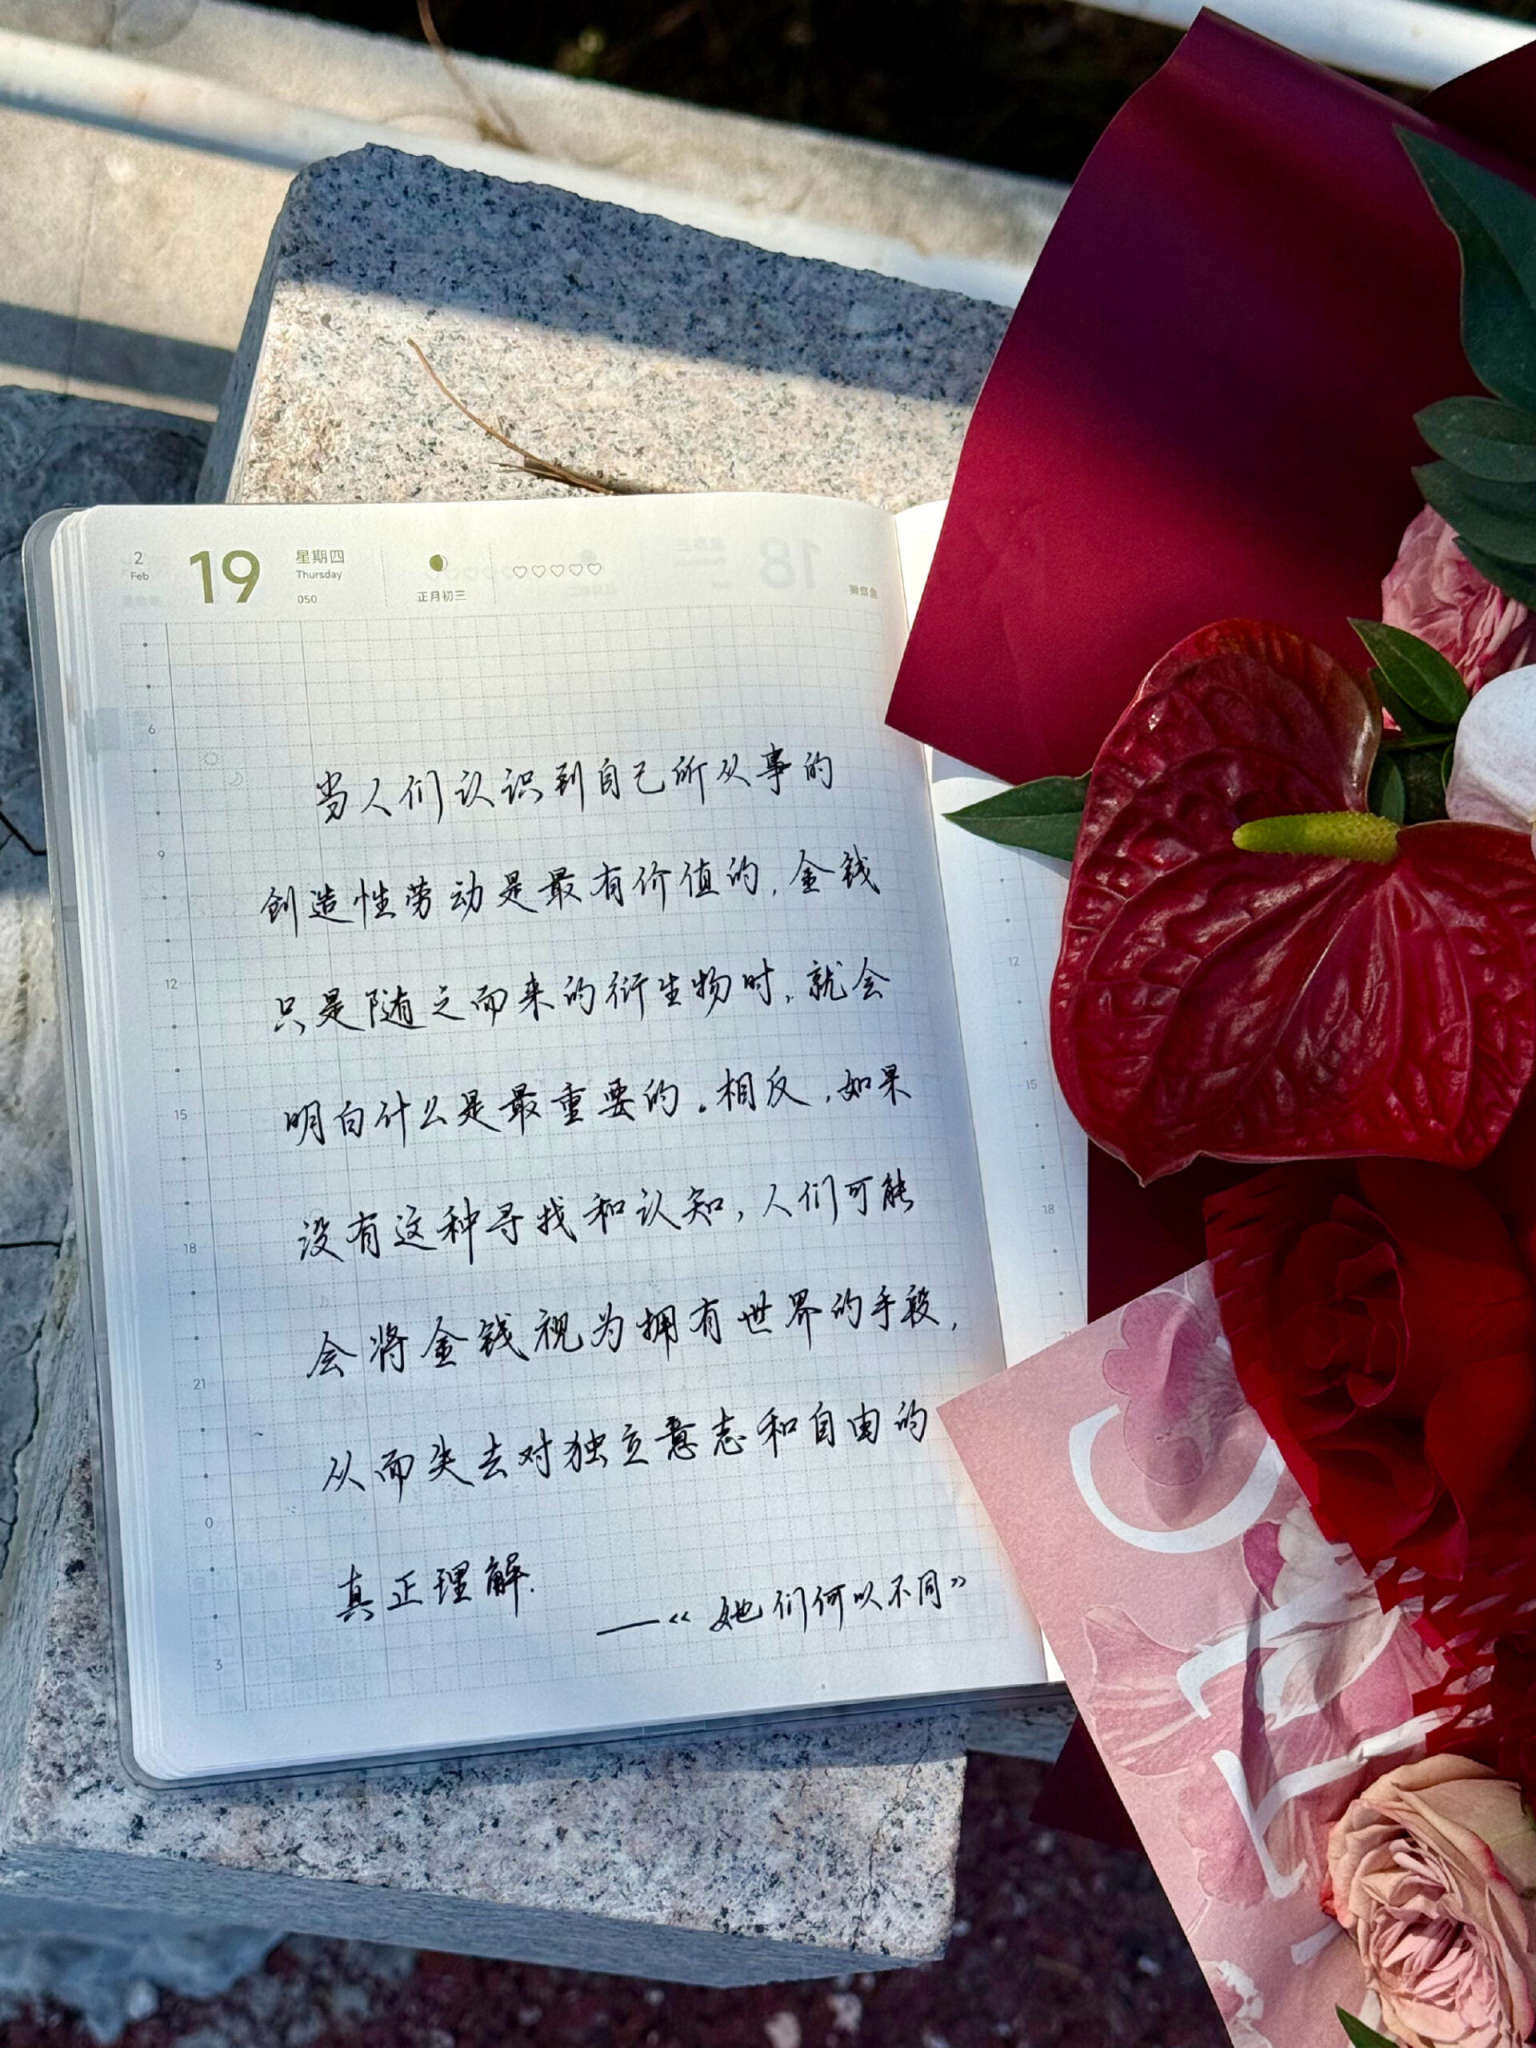 2
Feb
19
星期四
Thursday
050
正月初三
6
当人们认识到自己所从事的
9
创造性劳动是最有价值的，金钱
12
只是随之而来的衍生物时，就会
15
明白什么是最重要的。相反，如果
没有这种寻找和认知，人们可能
18
会将金钱视为拥有世界的手段，
21
从而失去对独立意志和自由的
0
真正理解.
——《她们何以不同》
3
12
15
18